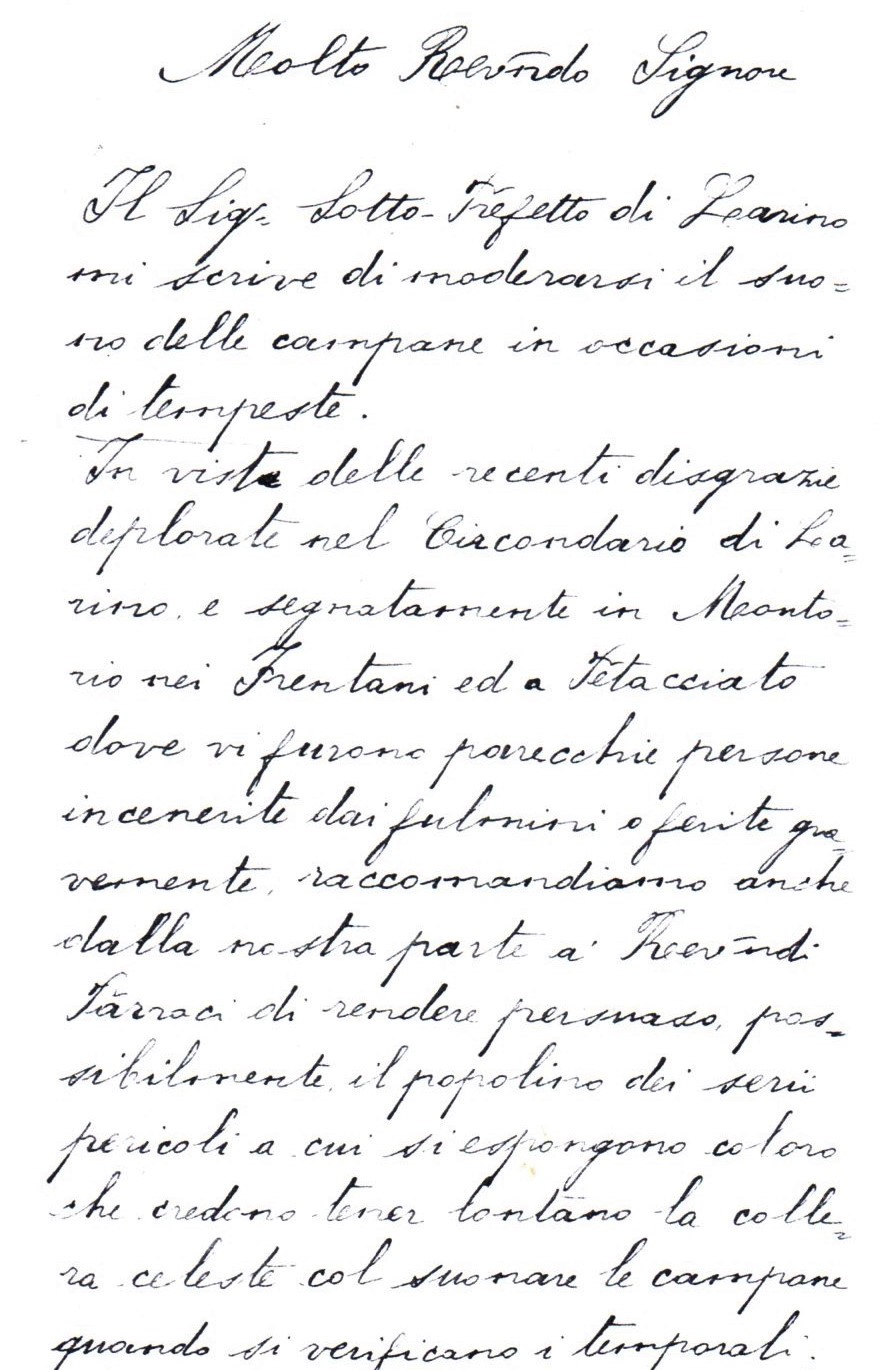 Molto Rev̄ndo Signore
Il Sig. Sotto-Prefetto di Larino
mi scrive di moderarsi il suo=
no delle campane in occasioni
di tempeste.
In vista delle recenti disgrazie
deplorate nel Circondario di La=
rino, e segnatamente in Monto=
rio nei Frentani ed a Petacciato
dove vi furono parecchie persone
incenerite dai fulmini o ferite gra=
vemente, raccomandiamo anche
dalla nostra parte a' Rev̄ndi
Parroci di rendere persuaso, pos=
sibilmente, il popolino dei serii
pericoli a cui si espongono coloro
che credono tener lontano la colle=
ra celeste col suonare le campane
quando si verificano i temporali.